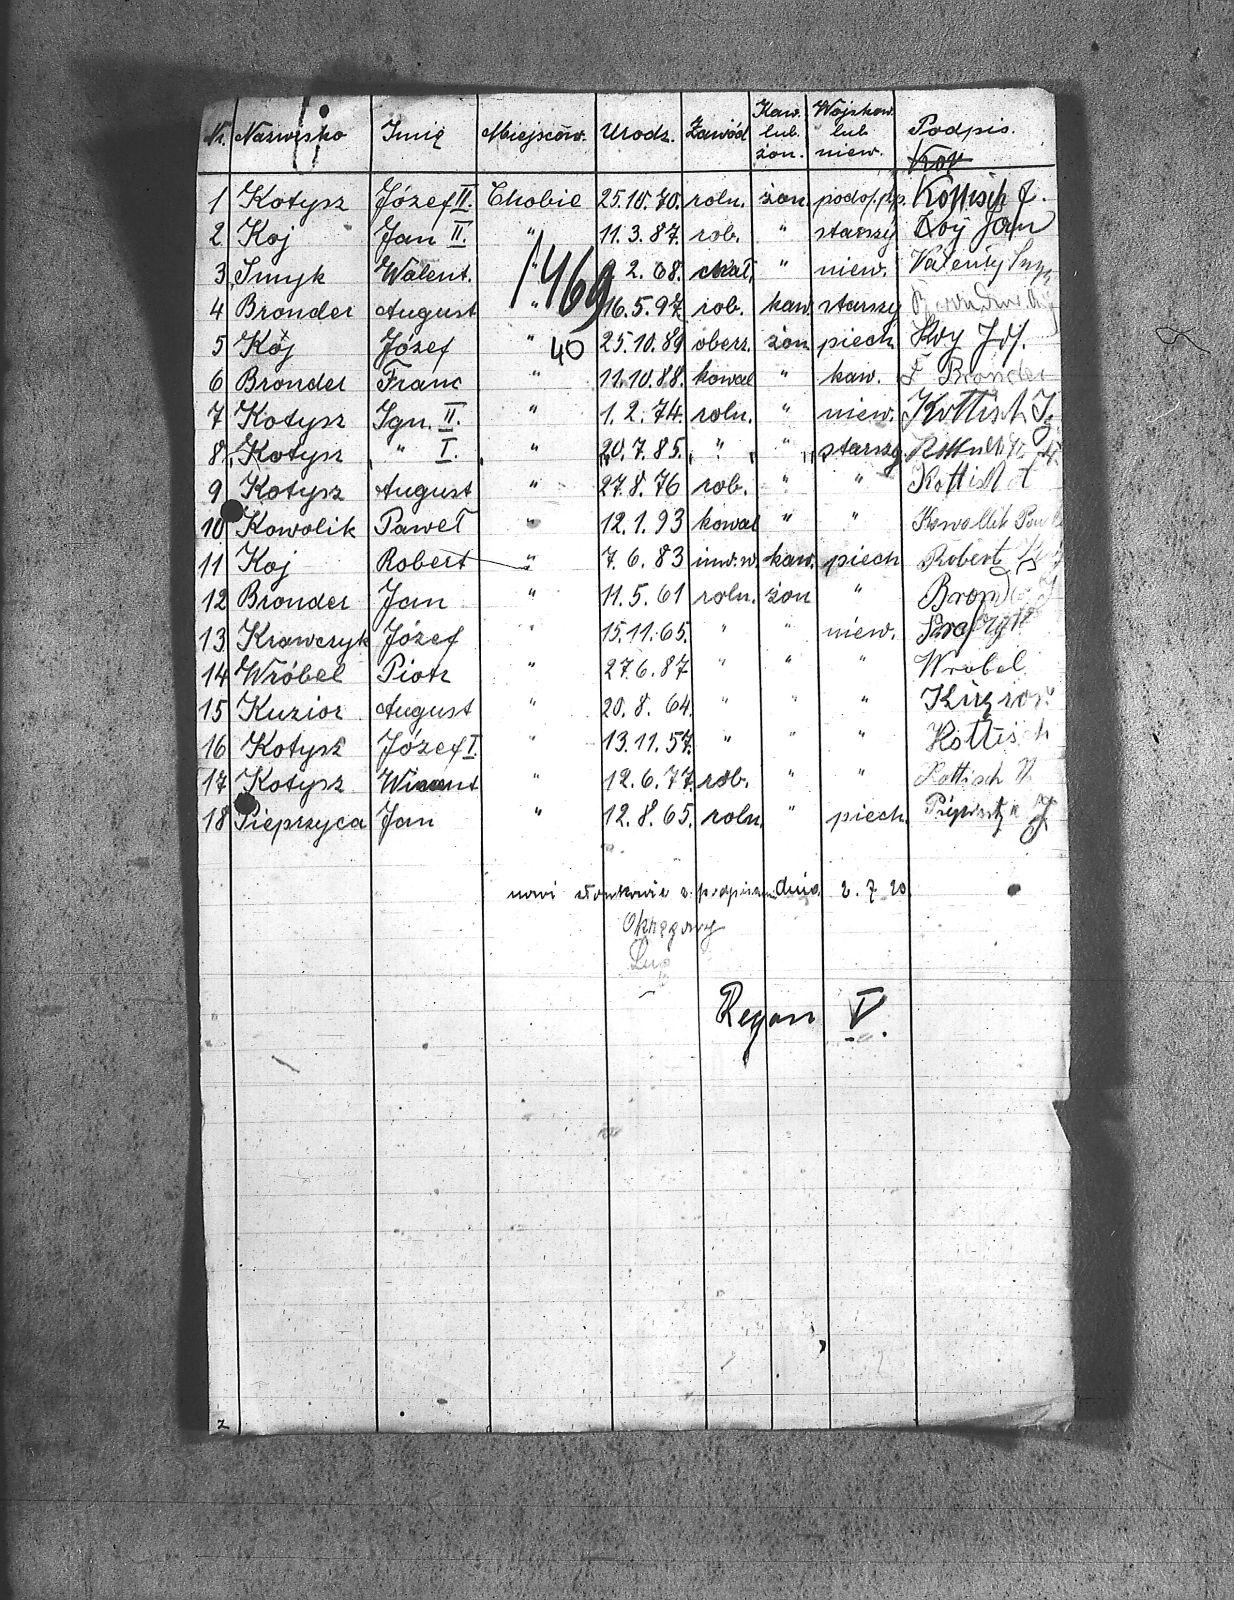 Nr. Nazwisko Imię Miejscow. Urodz. Zawód Kaw. lub żon. Wojskow. lub niew. Podpis.
1 Kotysz Józef II. Chobie 25.10.70. roln. żon. podof. Kottisch J.
2 Koj Jan II. " 11.3.87. rob. " starszy Koy Jan
3 Smyk Walent. " 2.68. chał. " niew.
1469
4 Bronder August " 16.5.97. rob. kaw. starszy
5 Koj Józef " 25.10.89 oberz. żon. piech. Koy Jos.
40
6 Bronder Franc " 11.10.88. kowal " kaw. F Bronder
7 Kotysz Ign. II. " 1.2.74. roln. " niew. Kottisch Ig
8 Kotysz " I. " 20.7.85. " " starszy
9 Kotysz August " 27.8.76 rob. " " Kottisch A
10 Kowolik Paweł " 12.1.93 kowal " " Kowallik Paul
11 Koj Robert " 7.6.83 inw.w. kaw. piech Robert Koy
12 Bronder Jan " 11.5.61 roln. żon " Bronder J
13 Krawczyk Józef " 15.11.65. " " niew.
14 Wróbel Piotr " 27.6.87 " " " Wrobel
15 Kuzior August " 20.8.64. " " " Kuzior
16 Kotysz Józef I. " 13.11.57. " " " Kottisch
17 Kotysz Wincent " 12.6.77. rob. " " Kottisch W.
18 Pieprzyca Jan " 12.8.65. roln. " piech.
nowi członkowie z podpisami dnia 2.7.20
Okręgowy
Rejon V.